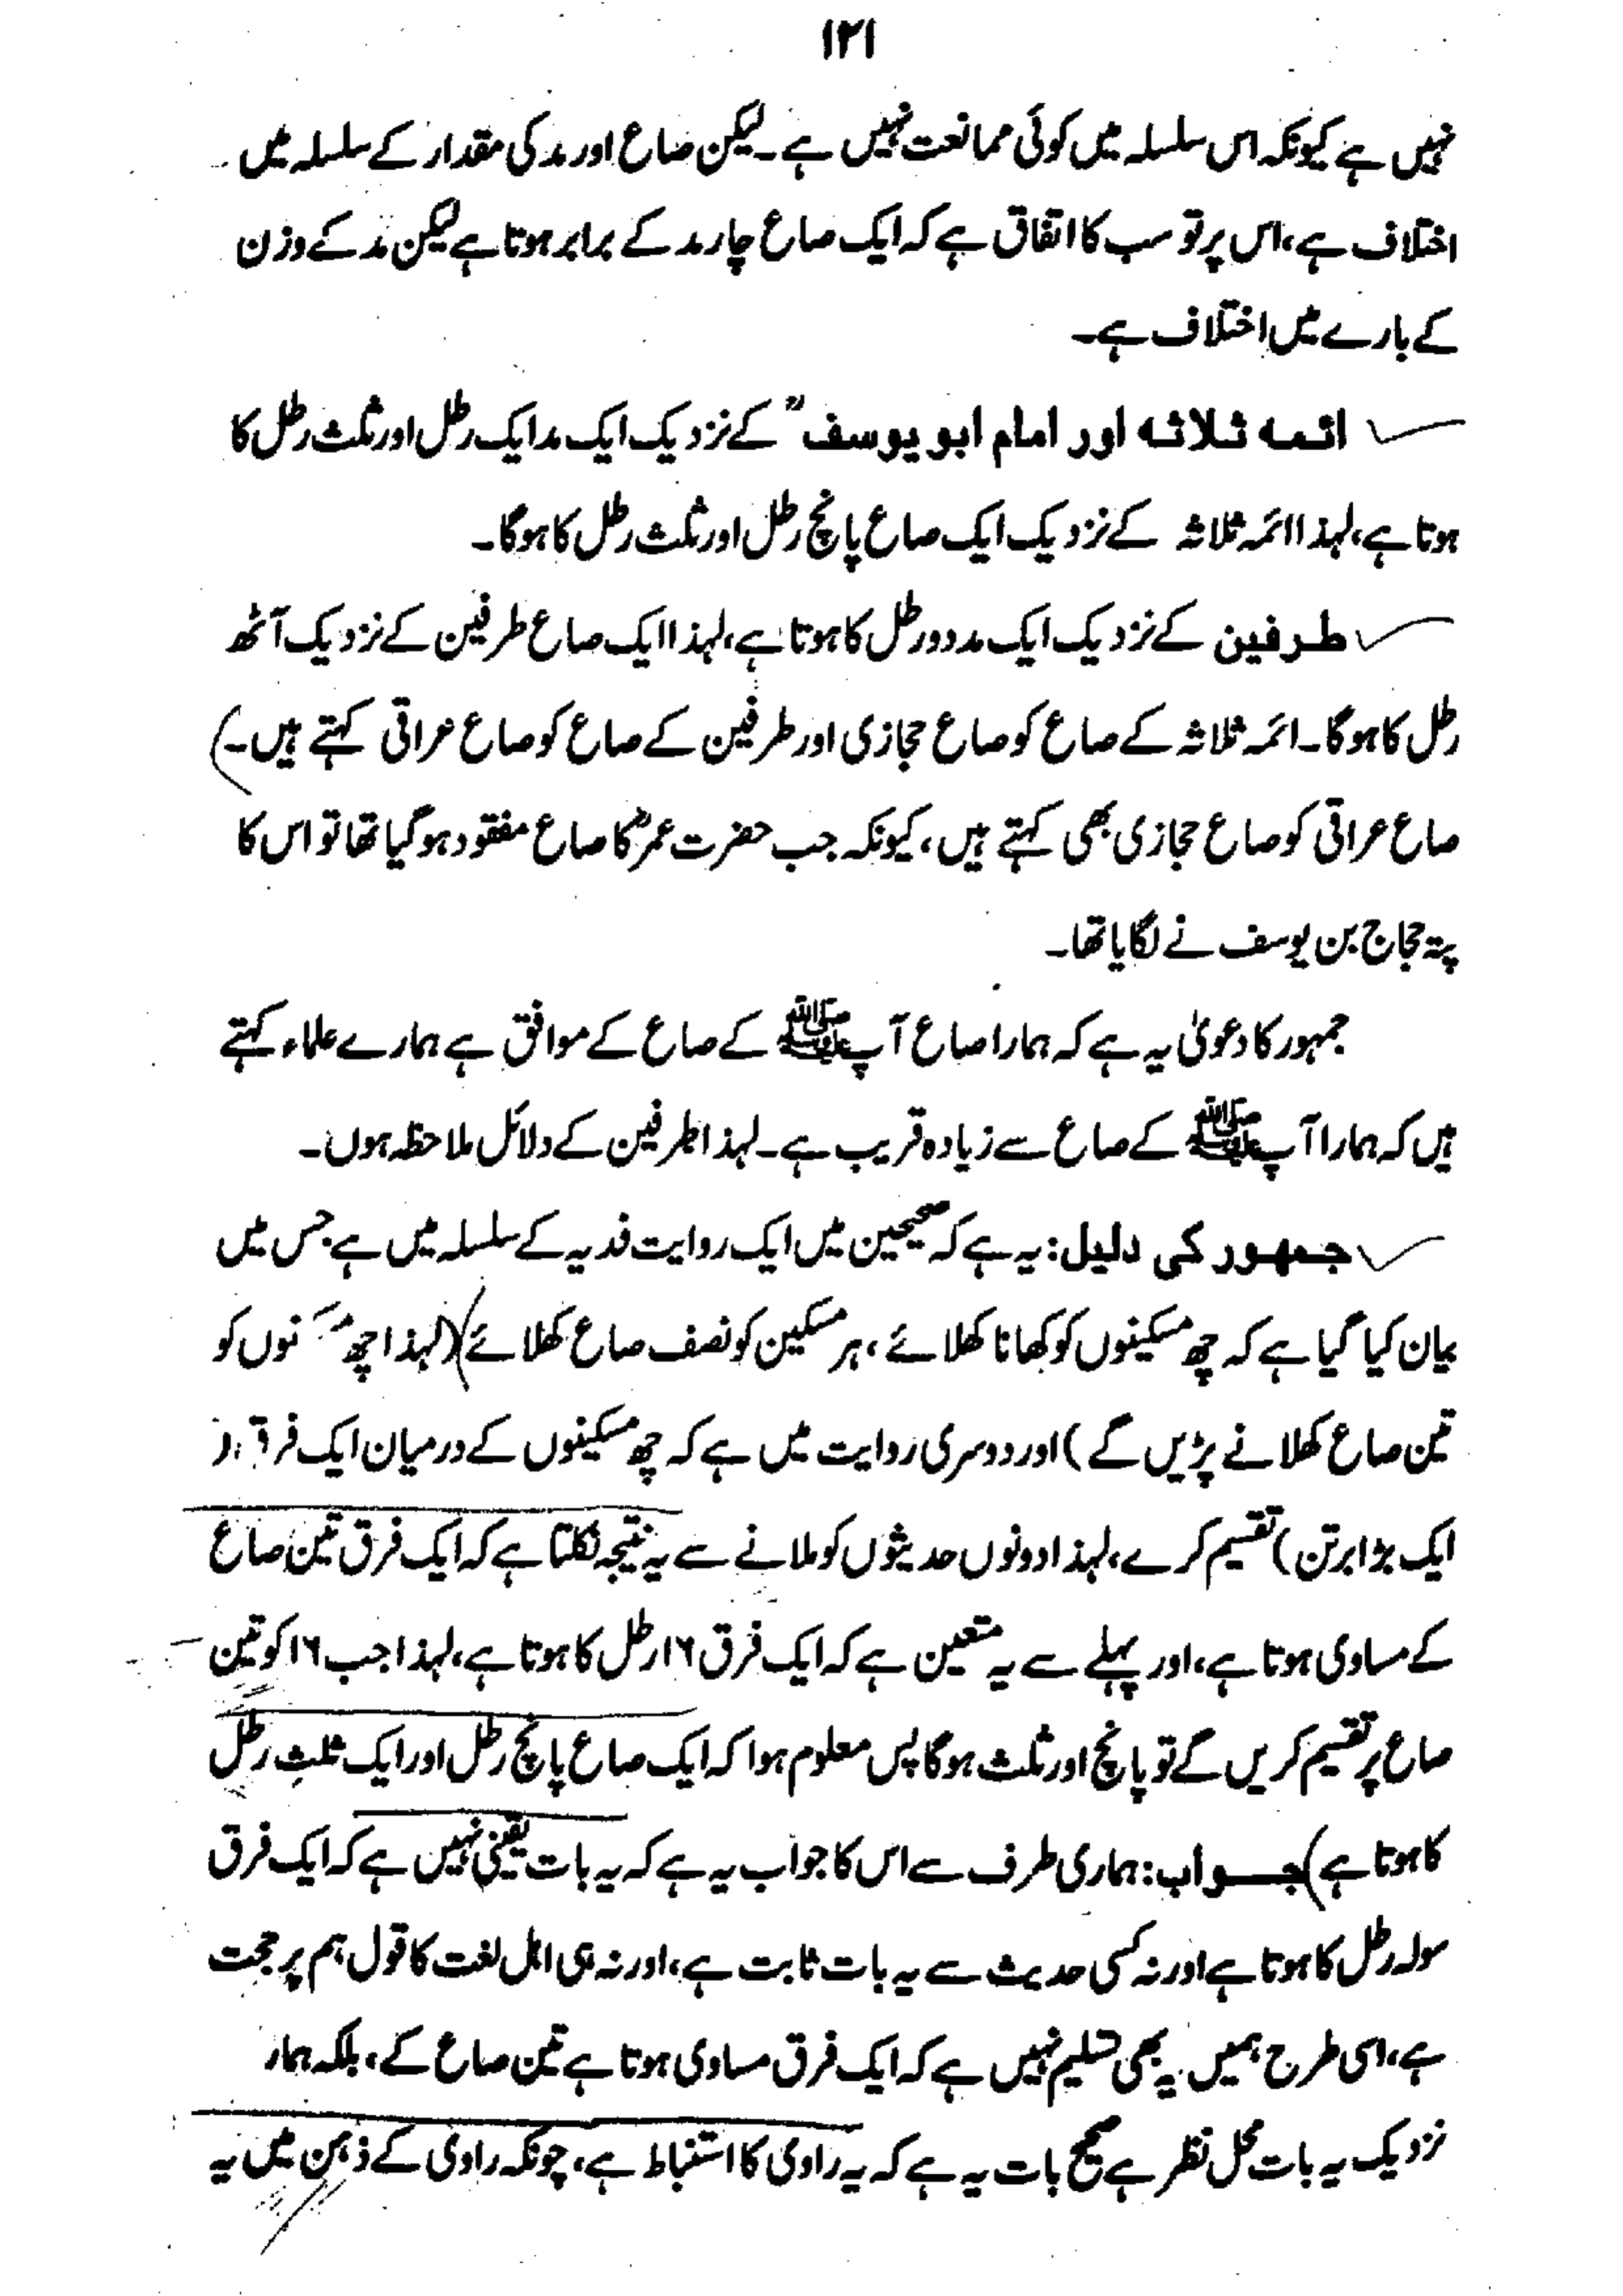 ۱۲۱
نہیں ہے کیونکہ اس سلسلہ میں کوئی ممانعت نہیں ہے۔ لیکن صاع اور مد کی مقدار کے سلسلہ میں
اختلاف ہے، اس پر تو سب کا اتفاق ہے کہ ایک صاع چار مد کے برابر ہوتا ہے لیکن مد کے وزن
کے بارے میں اختلاف ہے۔
ائمہ ثلاثہ اور امام ابو یوسفؒ کے نزدیک ایک مد ایک رطل اور ثلث رطل کا
ہوتا ہے، لہذا ائمہ ثلاثہ کے نزدیک ایک صاع پانچ رطل اور ثلث رطل کا ہوگا۔
طرفین کے نزدیک ایک مد دو رطل کا ہوتا ہے، لہذا ایک صاع طرفین کے نزدیک آٹھ
رطل کا ہوگا۔ ائمہ ثلاثہ کے صاع کو صاع حجازی اور طرفین کے صاع کو صاع عراقی کہتے ہیں۔)
صاع عراقی کو صاع حجازی بھی کہتے ہیں، کیونکہ جب حضرت عمرؓ کا صاع مفقود ہوگیا تھا تو اس کا
پتہ حجاج بن یوسف نے لگایا تھا۔
جمہور کا دعویٰ یہ ہے کہ ہمارا صاع آپ ﷺ کے صاع کے موافق ہے ہمارے علماء کہتے
ہیں کہ ہمارا آپ ﷺ کے صاع سے زیادہ قریب ہے۔ لہذا طرفین کے دلائل ملاحظہ ہوں۔
جمهور کی دلیل: یہ ہے کہ صحیحین میں ایک روایت فدیہ کے سلسلہ میں ہے جس میں
بیان کیا گیا ہے کہ چھ مسکینوں کو کھانا کھلائے، ہر مسکین کو نصف صاع کھلائے (لہذا چھ نوں کو
تین صاع کھلانے پڑیں گے) اور دوسری روایت میں ہے کہ چھ مسکینوں کے درمیان ایک فرق
ایک بڑا برتن) تقسیم کرے، لہذا دونوں حدیثوں کو ملانے سے یہ نتیجہ نکلتا ہے کہ ایک فرق تین صاع
کے مساوی ہوتا ہے، اور پہلے سے یہ متعین ہے کہ ایک فرق ۱۶ رطل کا ہوتا ہے، لہذا جب ۱۶ کو تین
صاع پر تقسیم کریں گے تو پانچ اور ثلث ہوگا پس معلوم ہوا کہ ایک صاع پانچ رطل اور ایک ثلثِ رطل
کا ہوتا ہے) جواب: ہماری طرف سے اس کا جواب یہ ہے کہ یہ بات یقینی نہیں ہے کہ ایک فرق
سولہ رطل کا ہوتا ہے اور نہ کسی حدیث سے یہ بات ثابت ہے، اور نہ ہی اہل لغت کا قول ہم پر حجت
ہے، اسی طرح ہمیں یہ بھی تسلیم نہیں ہے کہ ایک فرق مساوی ہوتا ہے تین صاع کے، بلکہ ہمار
نزدیک یہ بات محل نظر ہے صحیح بات یہ ہے کہ یہ راوی کا استنباط ہے، چونکہ راوی کے ذہن میں یہ